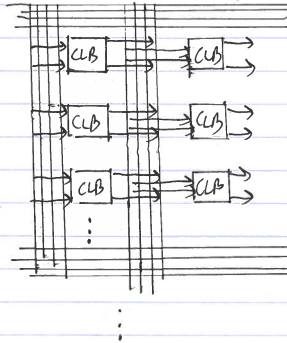 CLB CLB
CLB CLB
CLB CLB